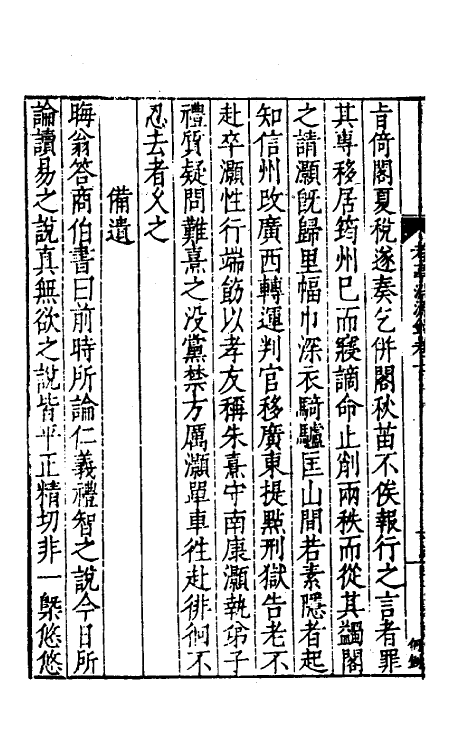 旨倚閣夏稅遂奏乞併閣秋苗不俟報行之言者罪
其專移居筠州巳而寢謫命止削兩秩而從其蠲閣
之請灝旣歸里幅巾深衣騎驢匡山間若素隱者起
知信州改廣西轉運判官移廣東提點刑獄告老不
赴卒灝性行端飭以孝友稱朱熹守南康灝執弟子
禮質疑問難熹之没黨禁方厲灝單車徃赴徘徊不
忍去者乆之
備遺
晦翁答商伯書曰前時所論仁義禮智之說今日所
論讀易之說真無欲之說皆平正精切非一槩悠悠